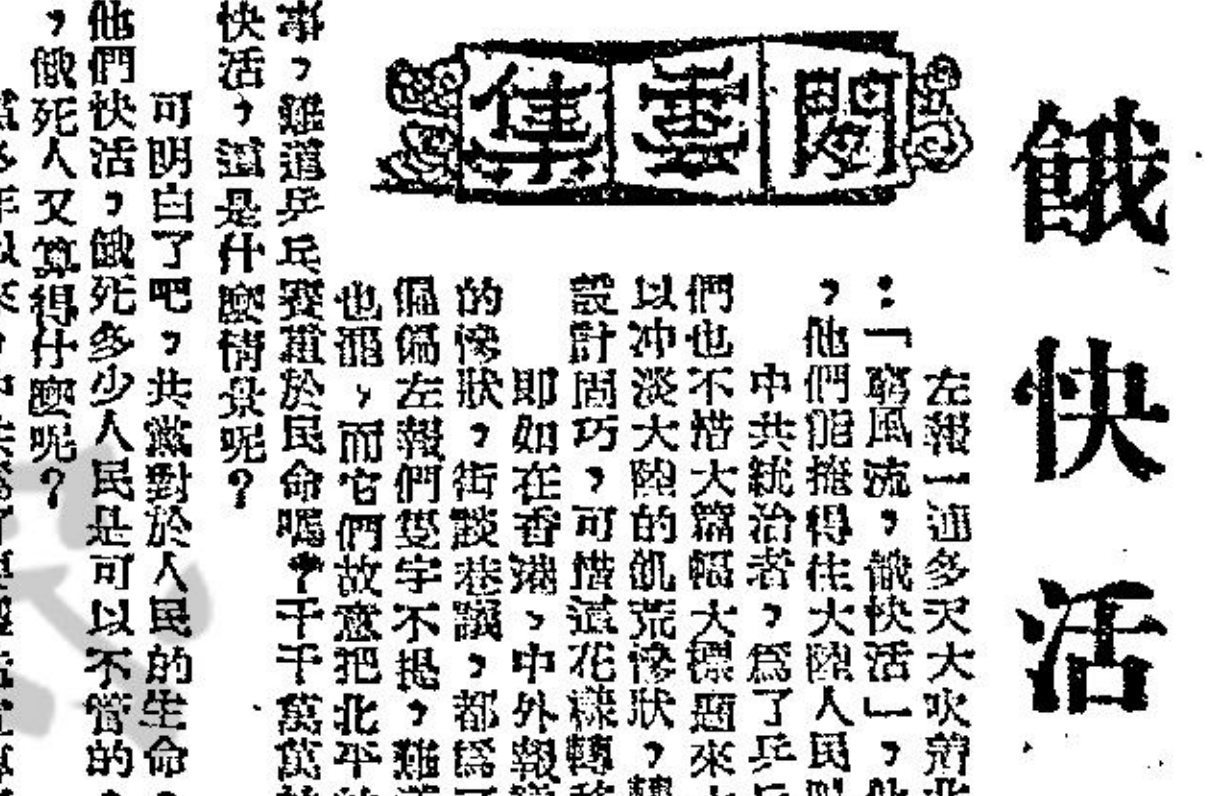 餓快活
閱雲集
左報一連多天大吹着北
：「窮風流，餓快活」，他
，他們能掩得住大陸人民
中共統治者，爲了乒乓
們也不惜大篇幅大標題來
以冲淡大陸的飢荒慘狀，轉
設計固巧，可惜這花樣轉移
即如在香港、中外報
的慘狀，街談巷議，都爲
偏偏左報們隻字不提，難道
也罷，而它們故意把北平的
事，難道乒乓賽重於民命嗎？千千萬萬
快活，這是什麼情景呢？
可明白了吧，共黨對於人民的生命，
他們快活，餓死多少人民是可以不管的，
，餓死人又算得什麼呢？